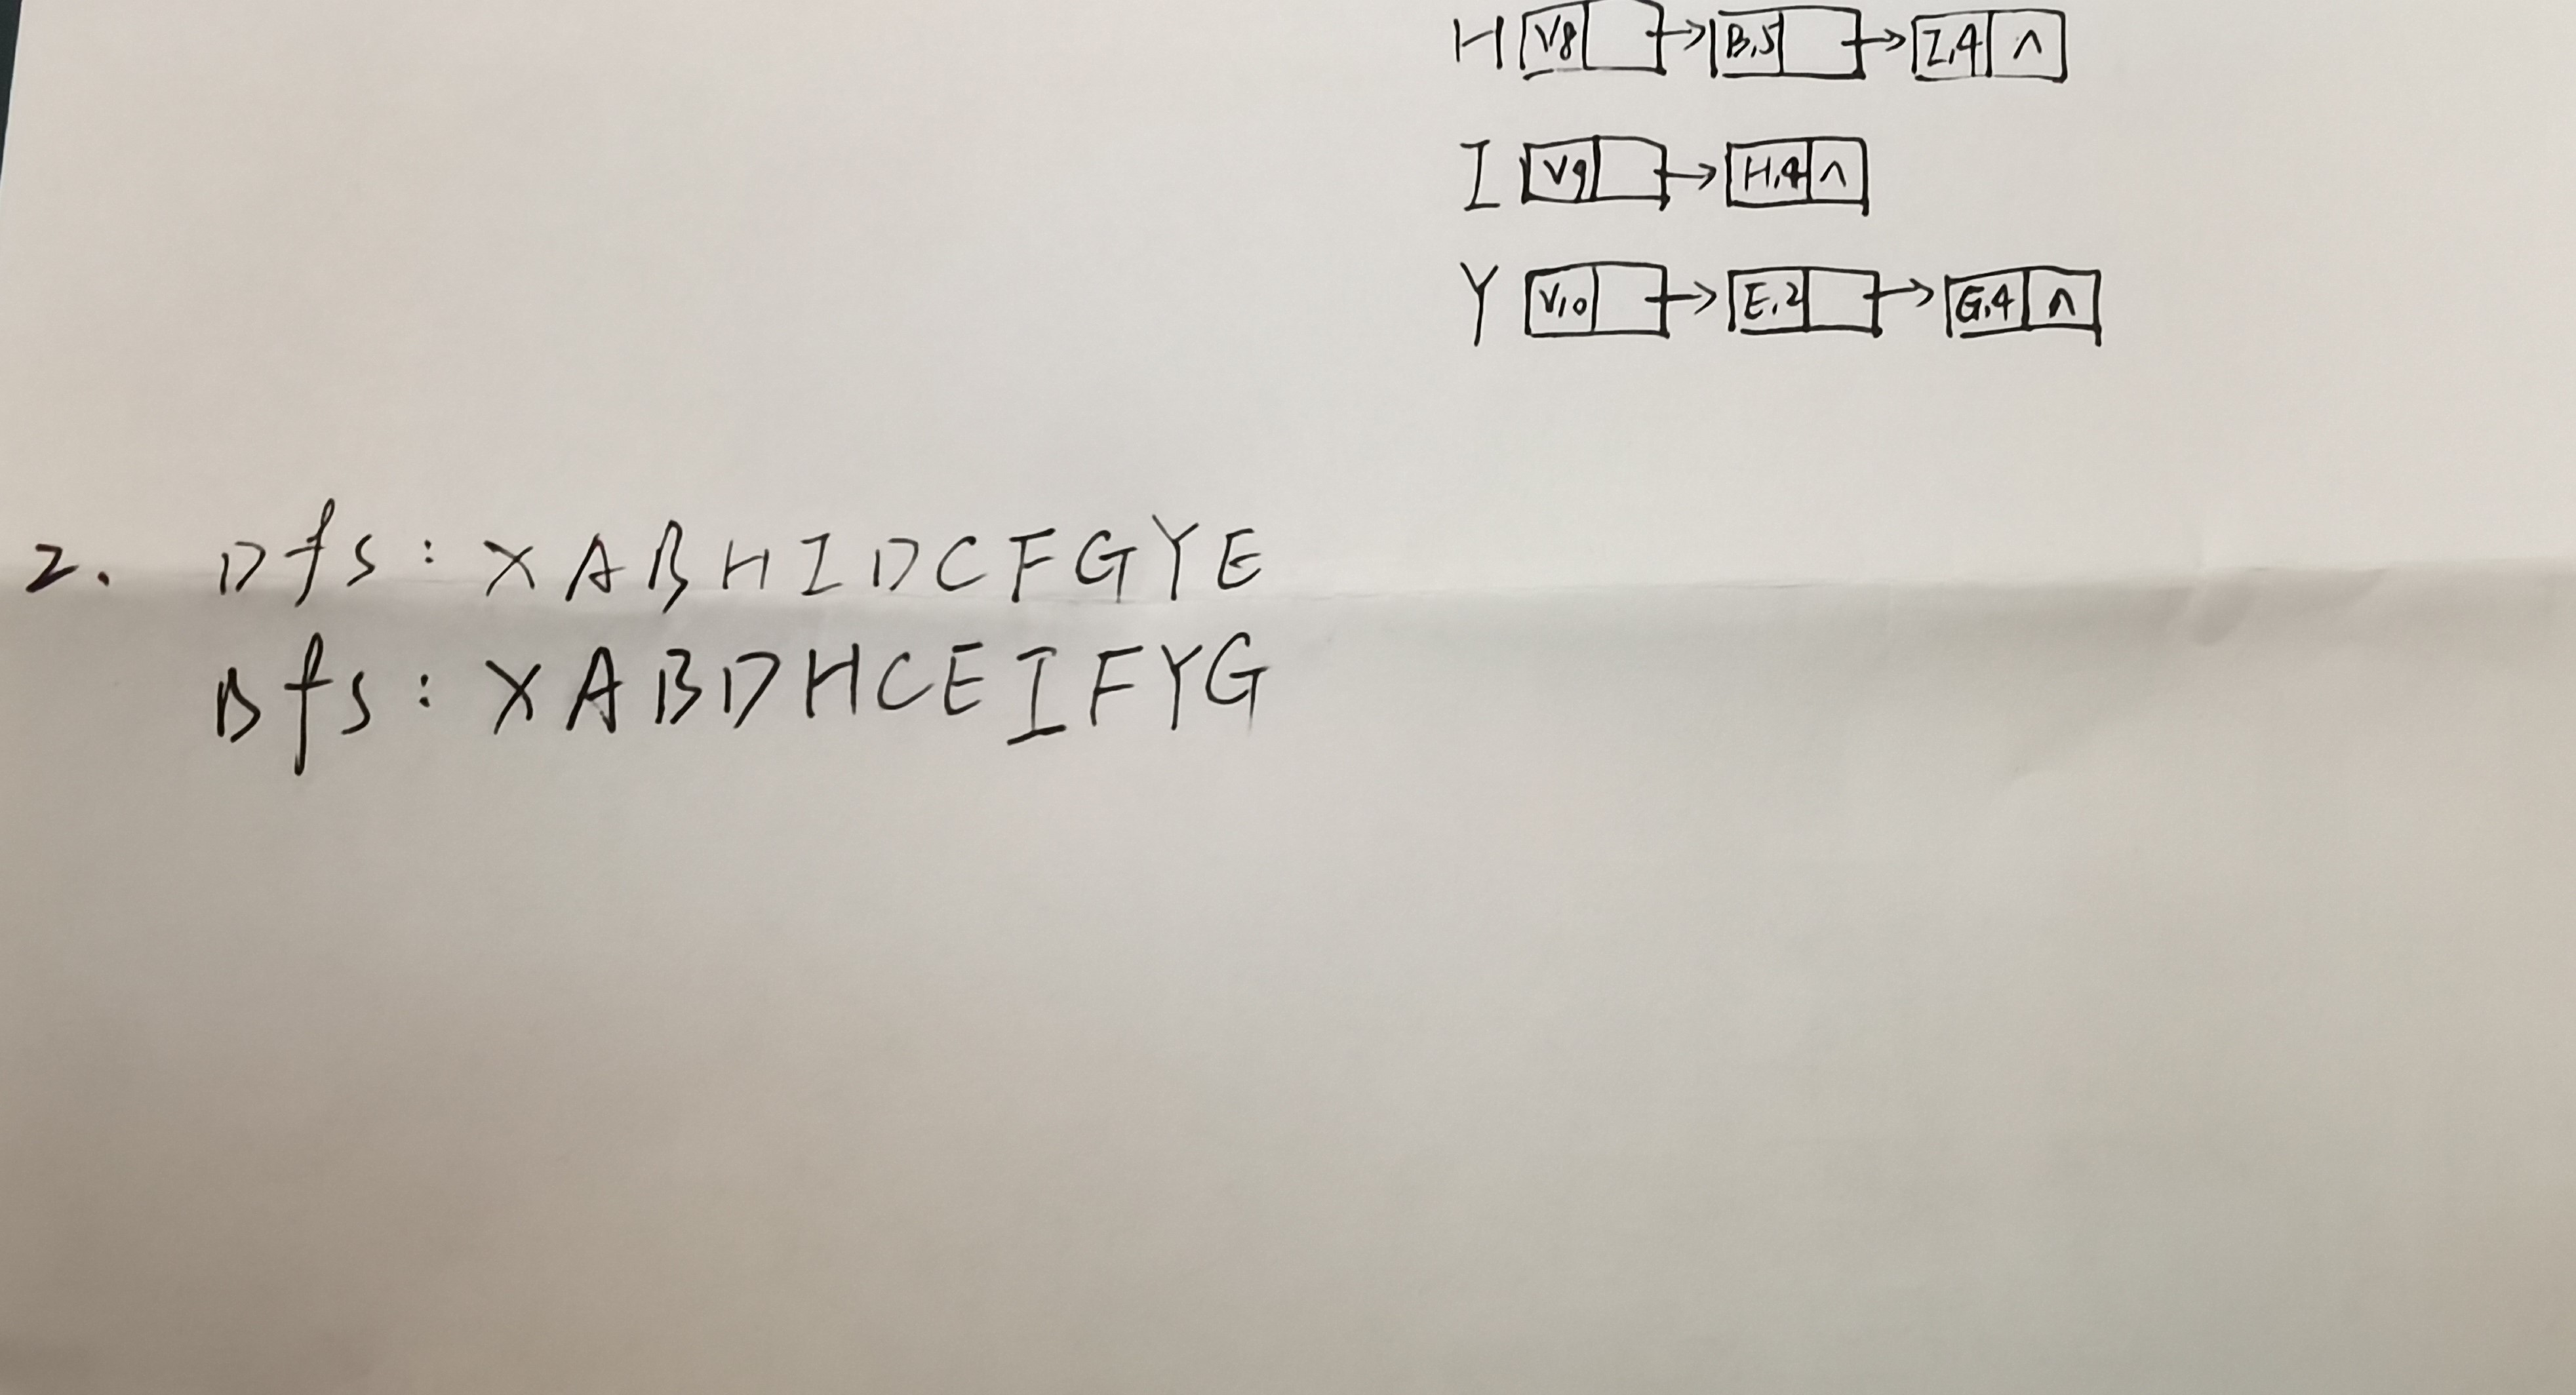 H V8 → B,5 → I,4 ∧
I V9 → H,4 ∧
Y V10 → E,2 → G,4 ∧
2. Dfs: X A B H I D C F G Y E
Bfs: X A B D H C E I F Y G